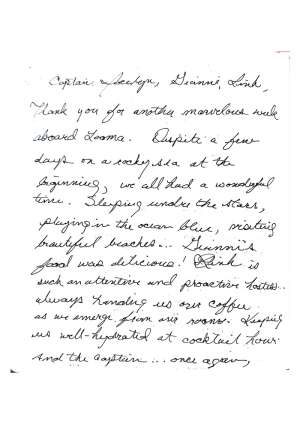 Captain Jocelyn, Gianni, Link,
Thank you for another marvelous week
aboard Looma. Despite a few
days on a rocky sea at the
beginning, we all had a wonderful
time. Sleeping under the stars,
playing in the ocean blue, visiting
beautiful beaches... Gianni's
food was delicious! Link is
such an attentive and proactive hostess...
always handing us our coffee
as we emerge from our rooms. Keeping
us well-hydrated at cocktail hour.
And the captain... once again,